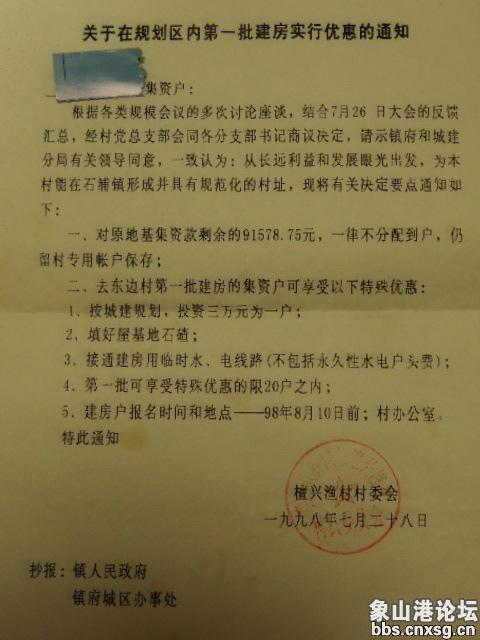 关于在规划区内第一批建房实行优惠的通知
集资户：
根据各类规模会议的多次讨论座谈，结合7月26 日大会的反馈
汇总，经村党总支部会同各分支部书记商议决定，请示镇府和城建
分局有关领导同意，一致认为：从长远利益和发展眼光出发，为本
村能在石浦镇形成并具有规范化的村址，现将有关决定要点通知如
下：
一、对原地基集资款剩余的91578.75元，一律不分配到户，仍
留村专用帐户保存；
二、去东边村第一批建房的集资户可享受以下特殊优惠：
1、按城建规划，投资三万元为一户；
2、填好屋基地石碴；
3、接通建房用临时水、电线路(不包括永久性水电户头费)；
4、第一批可享受特殊优惠的限20户之内；
5、建房户报名时间和地点——98年8月10日前；村办公室。
特此通知
檀兴渔村村委会
一九九八年七月二十八日
抄报：镇人民政府
镇府城区办事处
象山港论坛
bbs.cnxsg.cn